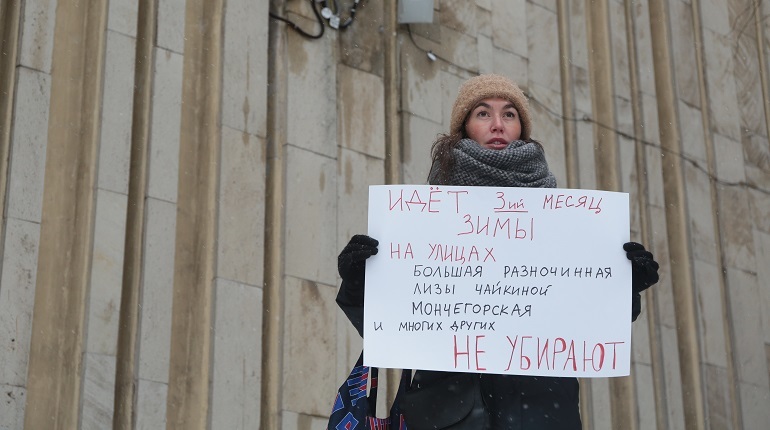 ИДЁТ 3ий МЕСЯЦ
ЗИМЫ
НА УЛИЦАХ
БОЛЬШАЯ РАЗНОЧИННАЯ
ЛИЗЫ ЧАЙКИНОЙ
МОНЧЕГОРСКАЯ
И МНОГИХ ДРУГИХ
НЕ УБИРАЮТ